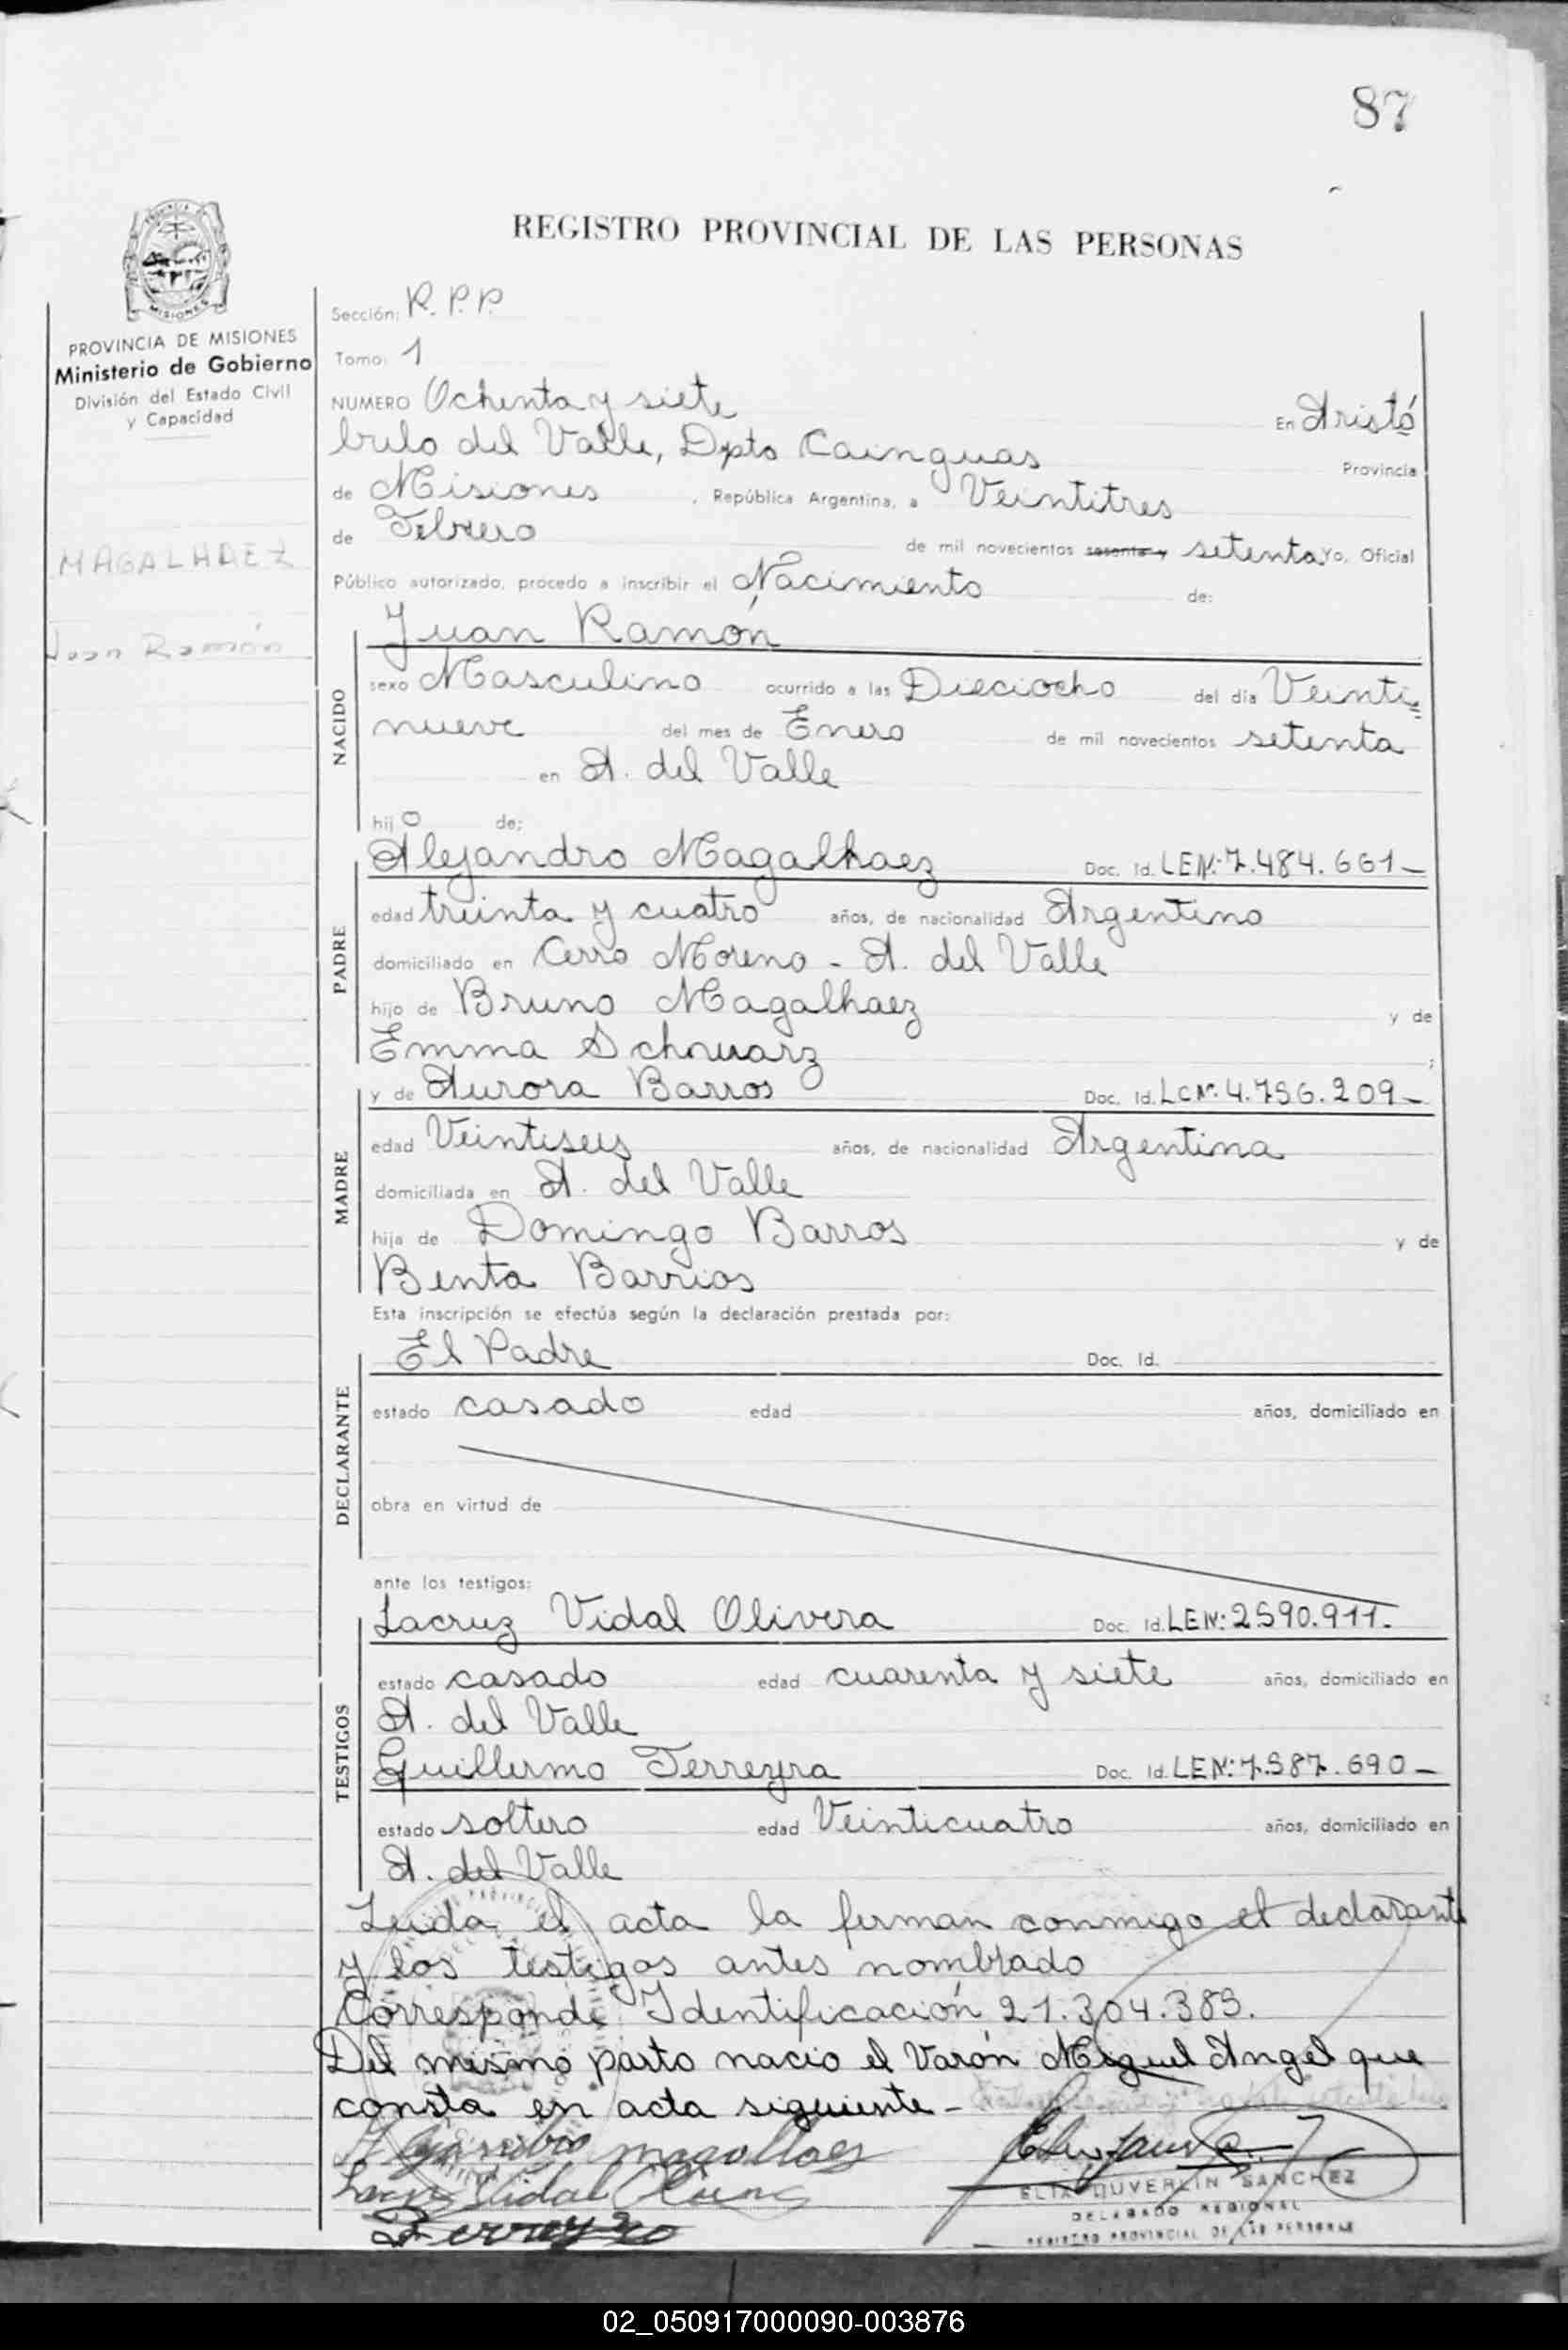 87
REGISTRO PROVINCIAL DE LAS PERSONAS
PROVINCIA DE MISIONES
Ministerio de Gobierno
División del Estado Civil
y Capacidad
MAGALHAEZ
Juan Ramón
Sección: R.P.P.
Tomo: 1
NUMERO Ochenta y siete En Aristó
bulo del Valle, Dpto Cainguas Provincia
de Misiones, República Argentina, a Veintitres
de Febrero de mil novecientos sesenta y setenta Yo, Oficial
Público autorizado, procedo a inscribir el Nacimiento de:
NACIDO
Juan Ramón
sexo Masculino ocurrido a las Dieciocho del día Veinti=
nueve del mes de Enero de mil novecientos setenta
en A. del Valle
hijo de:
PADRE
Alejandro Magalhaez Doc. Id. LEN: 7.484.661-
edad treinta y cuatro años, de nacionalidad Argentino
domiciliado en Cerro Moreno - A. del Valle
hijo de Bruno Magalhaez y de
Emma Schwarz ;
MADRE
y de Aurora Barros Doc. Id. LCN: 4.756.209-
edad Veintiseis años, de nacionalidad Argentina
domiciliada en A. del Valle
hija de Domingo Barros y de
Benta Barrios
Esta inscripción se efectúa según la declaración prestada por:
DECLARANTE
El Padre Doc. Id.
estado casado edad años, domiciliado en
obra en virtud de
ante los testigos:
TESTIGOS
Lacruz Vidal Olivera Doc. Id. LEN: 2590.911.
estado casado edad cuarenta y siete años, domiciliado en
A. del Valle
Guillermo Ferreyra Doc. Id. LEN: 7.587.690-
estado soltero edad Veinticuatro años, domiciliado en
A. del Valle
Leida el acta la firman conmigo el declarante
y los testigos antes nombrado
Corresponde Identificación 21.304.383.
Del mismo parto nacio el Varón Miguel Angel que
consta en acta siguiente-
Vidal
Ferreyra
ELIA DUVERLIN SANCHEZ
DELEGADO REGIONAL
REGISTRO PROVINCIAL DE LAS PERSONAS
02_050917000090-003876